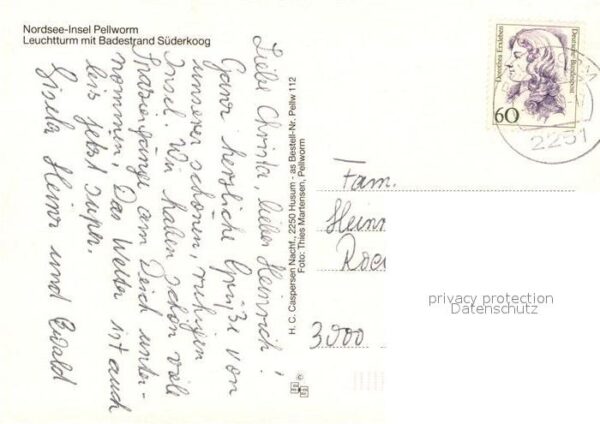 Nordsee-Insel Pellworm
Leuchtturm mit Badestrand Süderkoog
Liebe Christa, lieber Heinrich!
Ganz herzliche Grüße von
unserer schönen, ruhigen
Insel. Wir haben schön viele
Spaziergänge am Deich unter-
nommen. Das Wetter ist auch
bis jetzt super.
Gisela Heinz und Ewald
H. C. Caspersen Nachf., 2250 Husum - as Bestell-Nr. Pellw 112
Foto: Thies Martensen, Pellworm
Dorothea Erxleben
Deutsche Bundespost
60
2251
Fam.
Heinr
3000
privacy protection
Datenschutz